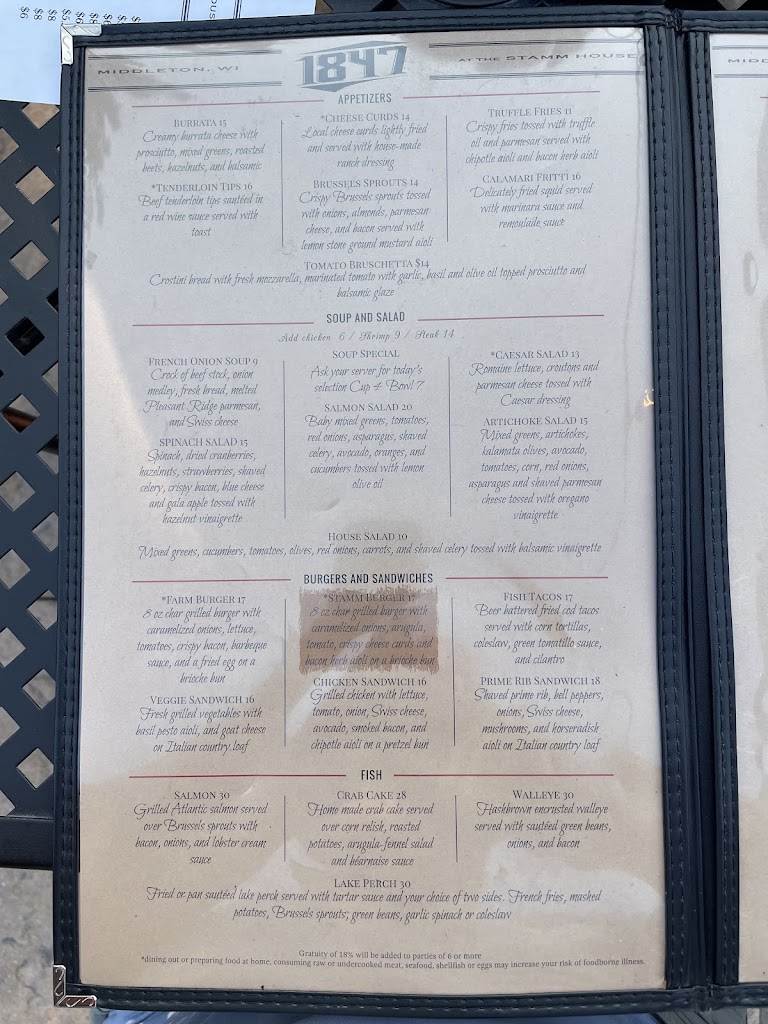 MIDDLETON, WI
1847
AT THE STAMM HOUSE
APPETIZERS
BURRATA 15
Creamy burrata cheese with
prosciutto, mixed greens, roasted
beets, hazelnuts, and balsamic
*TENDERLOIN TIPS 16
Beef tenderloin tips sautéed in
a red wine sauce served with
toast
*CHEESE CURDS 14
Local cheese curds lightly fried
and served with house-made
ranch dressing
BRUSSELS SPROUTS 14
Crispy Brussels sprouts tossed
with onions, almonds, parmesan
cheese, and bacon served with
lemon stone ground mustard aioli
TRUFFLE FRIES 11
Crispy fries tossed with truffle
oil and parmesan served with
chipotle aioli and bacon herb aioli
CALAMARI FRITTI 16
Delicately fried squid served
with marinara sauce and
remoulade sauce
TOMATO BRUSCHETTA $14
Crostini bread with fresh mozzarella, marinated tomato with garlic, basil and olive oil topped prosciutto and
balsamic glaze
SOUP AND SALAD
Add chicken 6 / Shrimp 9 / Steak 14
FRENCH ONION SOUP 9
Crock of beef stock, onion
medley, fresh bread, melted
Pleasant Ridge parmesan,
and Swiss cheese
SPINACH SALAD 15
Spinach, dried cranberries,
hazelnuts, strawberries, shaved
celery, crispy bacon, blue cheese
and gala apple tossed with
hazelnut vinaigrette
SOUP SPECIAL
Ask your server for today's
selection Cup 4 Bowl 7
SALMON SALAD 20
Baby mixed greens, tomatoes,
red onions, asparagus, shaved
celery, avocado, oranges, and
cucumbers tossed with lemon
olive oil
*CAESAR SALAD 13
Romaine lettuce, croutons and
parmesan cheese tossed with
Caesar dressing
ARTICHOKE SALAD 15
Mixed greens, artichokes,
kalamata olives, avocado,
tomatoes, corn, red onions,
asparagus and shaved parmesan
cheese tossed with oregano
vinaigrette
HOUSE SALAD 10
Mixed greens, cucumbers, tomatoes, olives, red onions, carrots, and shaved celery tossed with balsamic vinaigrette
BURGERS AND SANDWICHES
*FARM BURGER 17
8 oz char grilled burger with
caramelized onions, lettuce,
tomatoes, crispy bacon, barbeque
sauce, and a fried egg on a
brioche bun
VEGGIE SANDWICH 16
Fresh grilled vegetables with
basil pesto aioli, and goat cheese
on Italian country loaf
*STAMM BURGER 17
8 oz char grilled burger with
caramelized onions, arugula,
tomato, crispy cheese curds and
bacon herb aioli on a brioche bun
CHICKEN SANDWICH 16
Grilled chicken with lettuce,
tomato, onion, Swiss cheese,
avocado, smoked bacon, and
chipotle aioli on a pretzel bun
FISH TACOS 17
Beer battered fried cod tacos
served with corn tortillas,
coleslaw, green tomatillo sauce,
and cilantro
PRIME RIB SANDWICH 18
Shaved prime rib, bell peppers,
onions, Swiss cheese,
mushrooms, and horseradish
aioli on Italian country loaf
FISH
SALMON 30
Grilled Atlantic salmon served
over Brussels sprouts with
bacon, onions, and lobster cream
sauce
CRAB CAKE 28
Home made crab cake served
over corn relish, roasted
potatoes, arugula-fennel salad
and béarnaise sauce
WALLEYE 30
Hashbrown encrusted walleye
served with sautéed green beans,
onions, and bacon
LAKE PERCH 30
Fried or pan sautéed lake perch served with tartar sauce and your choice of two sides. French fries, mashed
potatoes, Brussels sprouts, green beans, garlic spinach or coleslaw
Gratuity of 18% will be added to parties of 6 or more
*dining out or preparing food at home, consuming raw or undercooked meat, seafood, shellfish or eggs may increase your risk of foodborne illness.